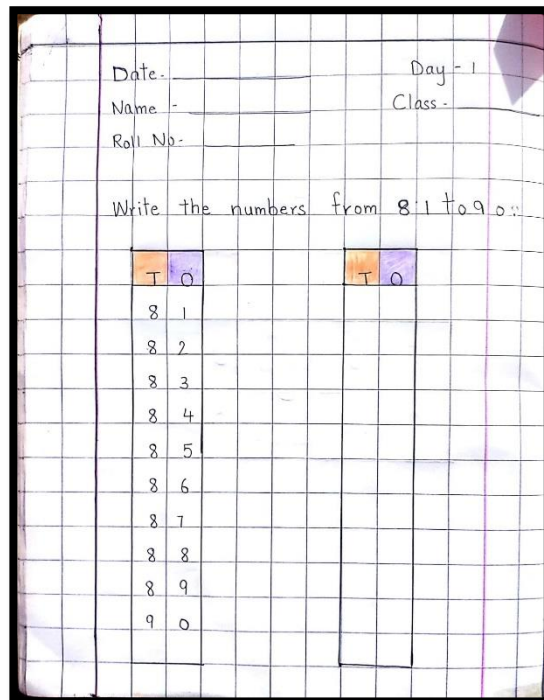 Date. Day - 1
Name - Class -
Roll No-
Write the numbers from 81 to 90:-
T O T O
8 1
8 2
8 3
8 4
8 5
8 6
8 7
8 8
8 9
9 0